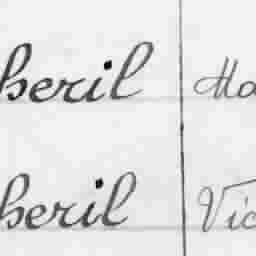 heril Ma
heril Vic